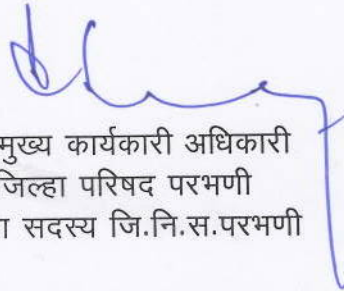 मुख्य कार्यकारी अधिकारी
जिल्हा परिषद परभणी
सदस्य जि.नि.स.परभणी